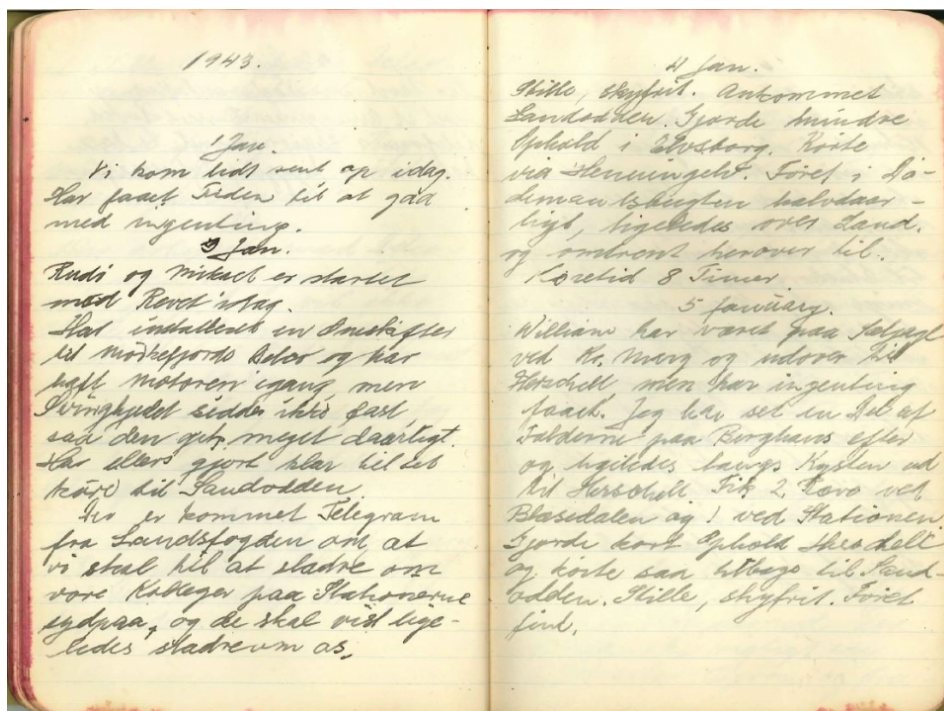 1943.
1 Jan.
Vi kom lidt sent op idag.
Har faaet Tiden til at gaa
med ingenting.
3 Jan.
Rudi og Mikael er startet
med Revet idag.
Har installeret en Omskifter
til Mørkefjords Delco og har
haft Motoren igang men
Svinghjulet sidder ikke fast
saa den gik meget daarligt.
Har ellers gjort klar til at
køre til Sandodden
Der er kommet Telegram
fra Landsfogden om at
vi skal til at sladre om
vore Kolleger paa Stationerne
sydpaa, og de skal vist lige-
ledes sladre om os.
4 Jan.
Stille, skyfrit. Ankommet
Sandodden Gjorde mindre
Ophold i Elvsborg. Kørte
via Henningelv. Føret i Da-
demantsbugten halvdaar-
ligt, ligeledes over Land.
og omtrent herover til.
Køretid 8 Timer
5 January.
William har været paa Fæljagt
ved Kr. Marg og udover til
Herschell men har ingenting
faaet. Jeg har set en Del af
Fælderne paa Berghaus efter
og ligeledes langs Kysten ud
til Herschell. Fik 2 Ræve ved
Blæsedalen og 1 ved Stationen
Gjorde kort Ophold Herschell
og kørte saa tilbage til Sand-
odden. Stille, skyfrit. Føret
fint.